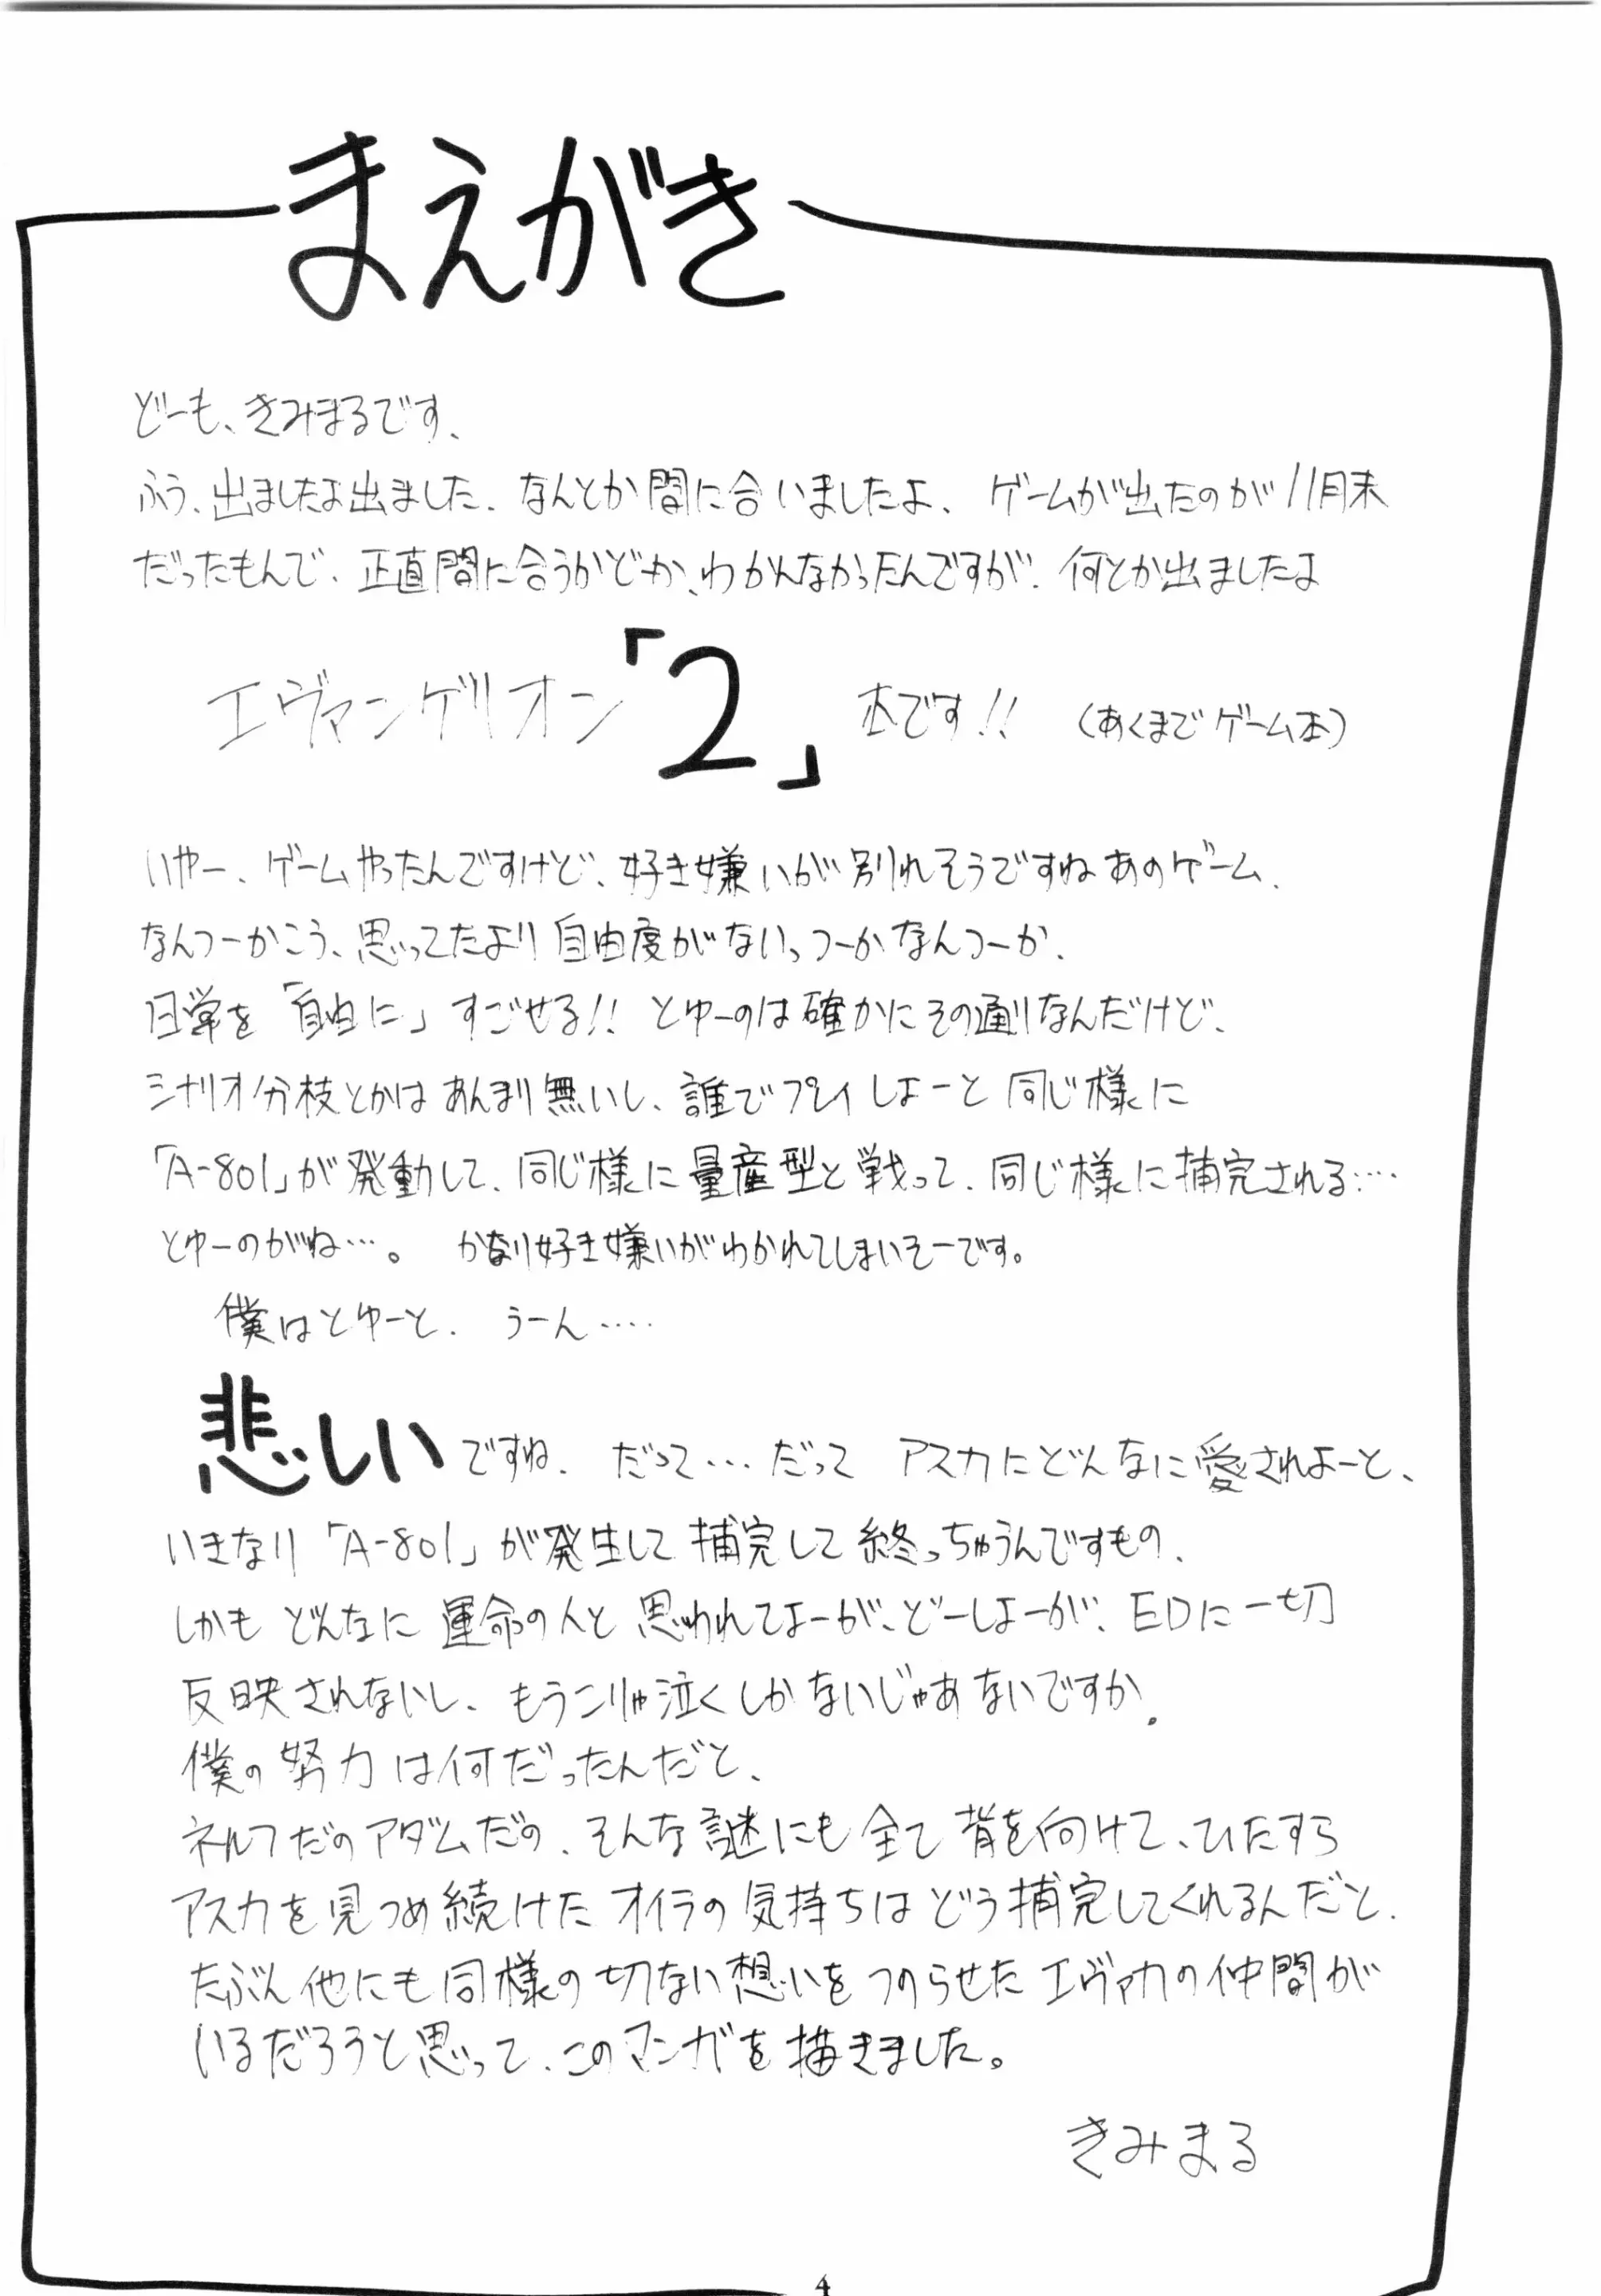 まえがき
どーも、きみまるです、
ふう、出ましたよ出ました、なんとか間に合いましたよ、ゲームが出たのが11月末
だったもんで、正直間に合うかどーか、わかんなかったんですが、何とか出ましたよ
エヴァンゲリオン「2」本です!!(あくまでゲーム本)
いやー、ゲームやったんですけど、好き嫌いが別れそうですねあのゲーム、
なんつーかこう、思ってたより自由度がないっつーかなんつーか、
日常を「自由に」すごせる!!とゆーのは確かにその通りなんだけど、
シナリオ分枝とかはあんまり無いし、誰でプレイしよーと同じ様に
「A-801」が発動して、同じ様に量産型と戦って、同じ様に補完される…
とゆーのがね…。かなり好き嫌いがわかれてしまいそーです。
僕はとゆーと、うーん‥‥
悲しいですね、だって…だってアスカにどんなに愛されよーと、
いきなり「A-801」が発生して補完して終っちゃうんですもの、
しかもどんなに運命の人と思われてよーが、どーしよーが、EDに一切
反映されないし、もうこりゅ泣くしかないじゃあないですか。
僕の努力は何だったんだと、
ネルフだのアダムだの、そんな謎にも全て背を向けて、ひたすら
アスカを見つめ続けたオイラの気持ちはどう補完してくれるんだと、
たぶん他にも同様の切ない想いをつのらせたエヴァカの仲間が
いるだろうと思って、このマンガを描きました。
きみまる
4